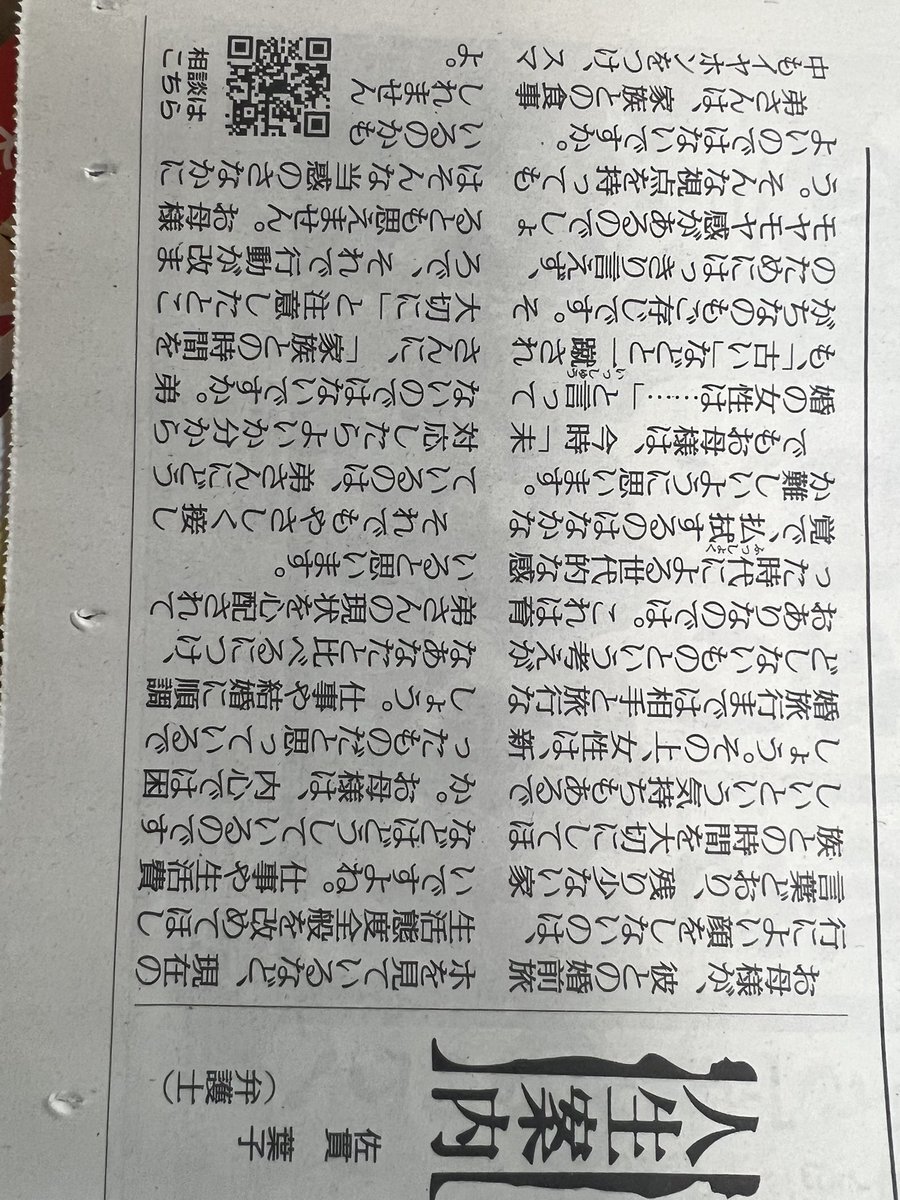 人生案内
佐貴 葉子
(弁護士)
お母様が、彼との婚前旅
行によい顔をしないのは、
言葉どおり、残り少ない家
族との時間を大切にしてほ
しいという気持ちもあるで
しょう。その上、女性は、新
婚旅行までは相手と旅行な
どしないものという考えが
おありなのでは。これは育
った時代による世代的な感
ふっしょく
覚で、払拭するのはなかな
か難しいように思います。
でもお母様は、今時「未
婚の女性は……」と言って
いっしゅう
も、「古い」などと一蹴され
がちなのもご存じです。そ
のためにはっきり言えず、
モヤモヤ感があるのでしょ
う。そんな視点を持っても
よいのではないですか。
弟さんは、家族との食事
中もイヤホンをつけ、スマ
ホを見ているなど、現在の
生活態度全般を改めてほし
いですよね。仕事や生活費
などはどうしているのです
か。お母様は、内心では困
ったものだと思っているで
しょう。仕事や結婚に順調
なあなたと比べるにつけ、
弟さんの現状を心配されて
いると思います。
それでもやさしく接し
ているのは、弟さんにどう
対応したらよいか分から
ないのではないですか。弟
さんに、「家族との時間を
大切に」と注意したとこ
ろで、それで行動が改ま
るとも思えません。お母様
はそんな当惑のさなかに
いるのかも
しれません
よ。
相談は
こちら